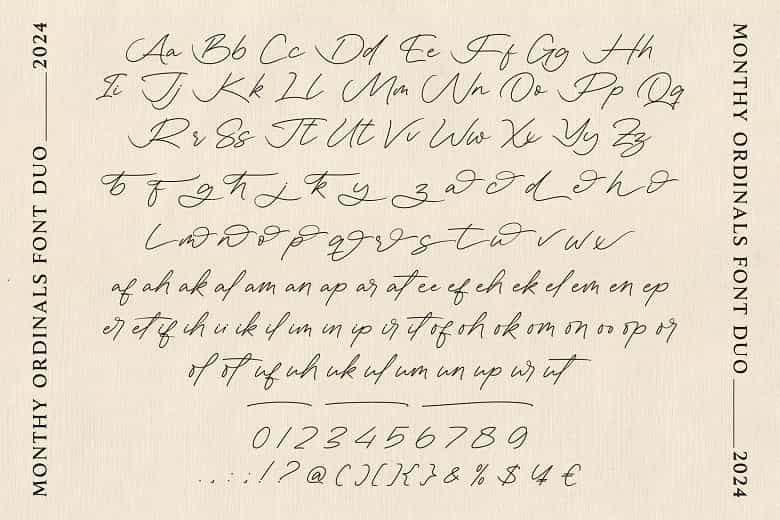 MONTHY ORDINALS FONT DUO 2024
Aa Bb Cc Dd Ee Ff Gg Hh
Ii Jj Kk Ll Mm Nn Oo Pp Qq
Rr Ss Tt Ut Vv Ww Xx Yy Zz
b f g h j k y z a c d e h o
i m n o p q r s t u v w x
af ah ak al am an ap ar at ee ef eh ek el em en ep
er et if ih ii ik il im in ip ir it of oh ok om on oo op or
ol ot uf uh uk ul um un up ur ut
0 1 2 3 4 5 6 7 8 9
. , : ; ! ? @ ( ) [ ] { } & % $ ¥ €
MONTHY ORDINALS FONT DUO 2024